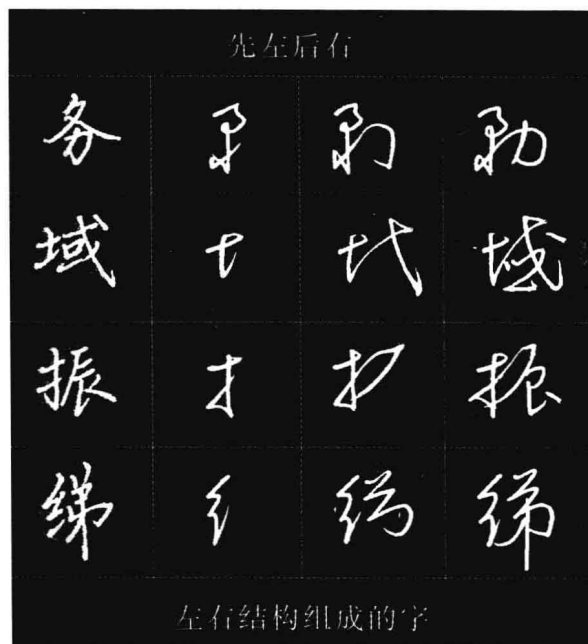 先左后右
务
域
振
绨
左右结构组成的字